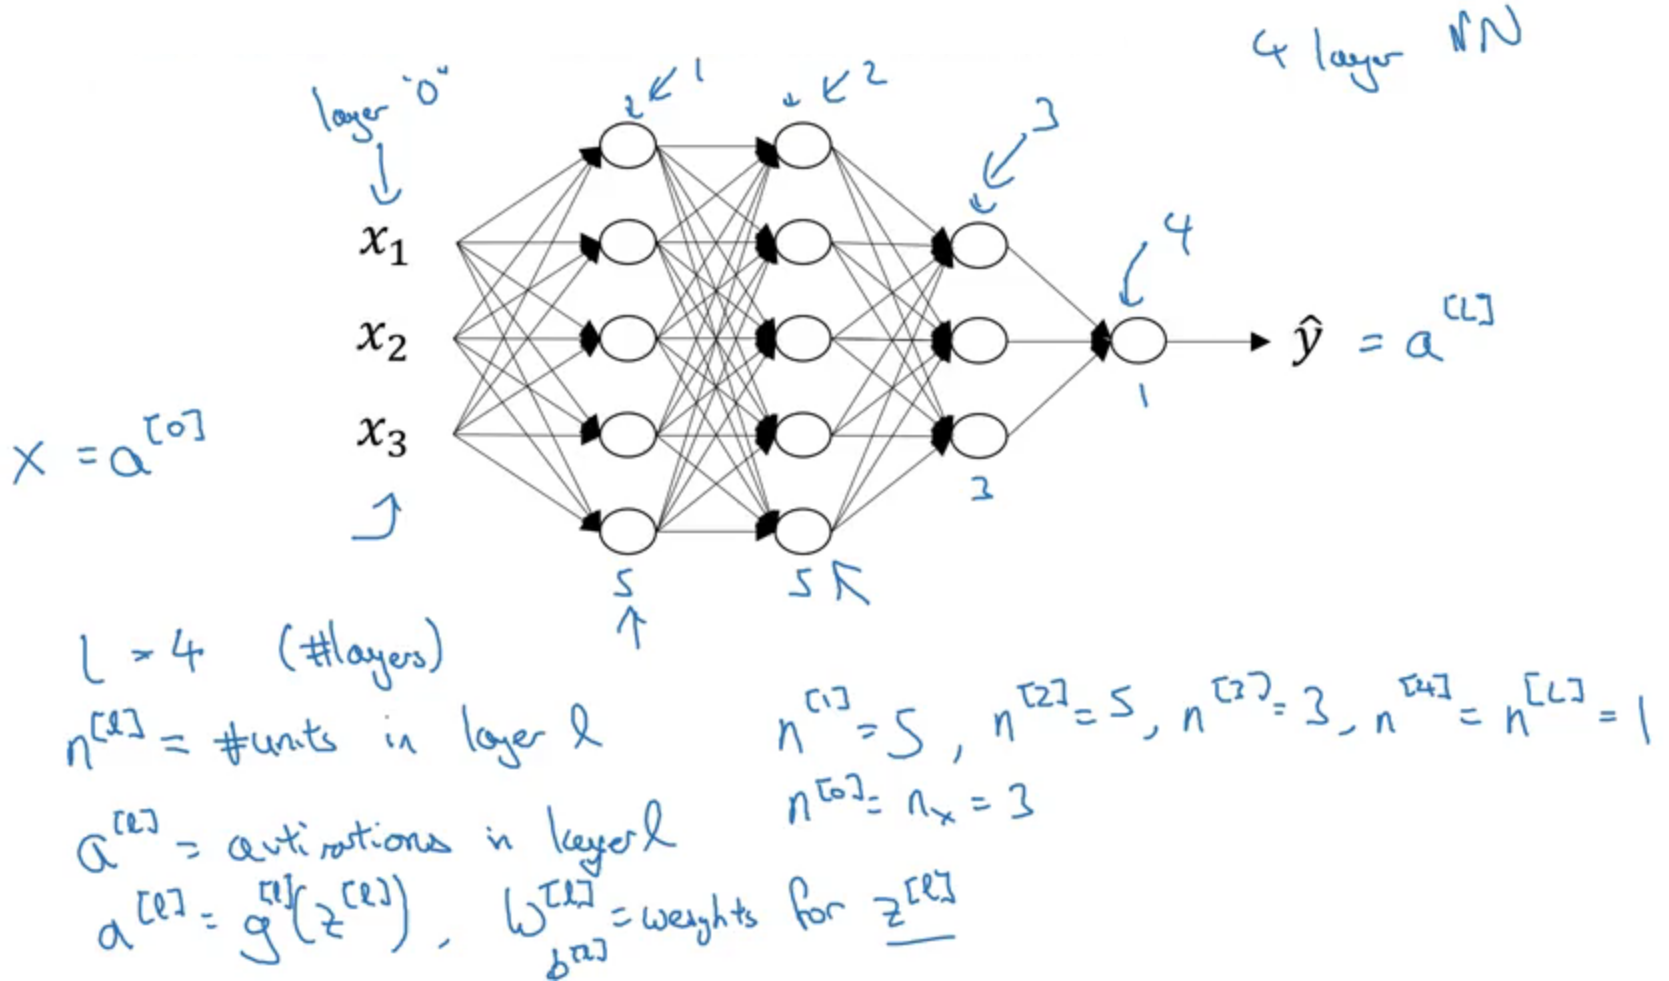 4 layer NN
layer "0"
1
2
3
4
x₁
x₂
x₃
X = a^[0]
ŷ = a^[L]
5
5
3
1
L = 4 (#layers)
n^[l] = #units in layer l
n^[1] = 5, n^[2] = 5, n^[3] = 3, n^[4] = n^[L] = 1
n^[0] = nₓ = 3
a^[l] = activations in layer l
a^[l] = g^[l](z^[l]), W^[l] = weights for z^[l]
b^[l]